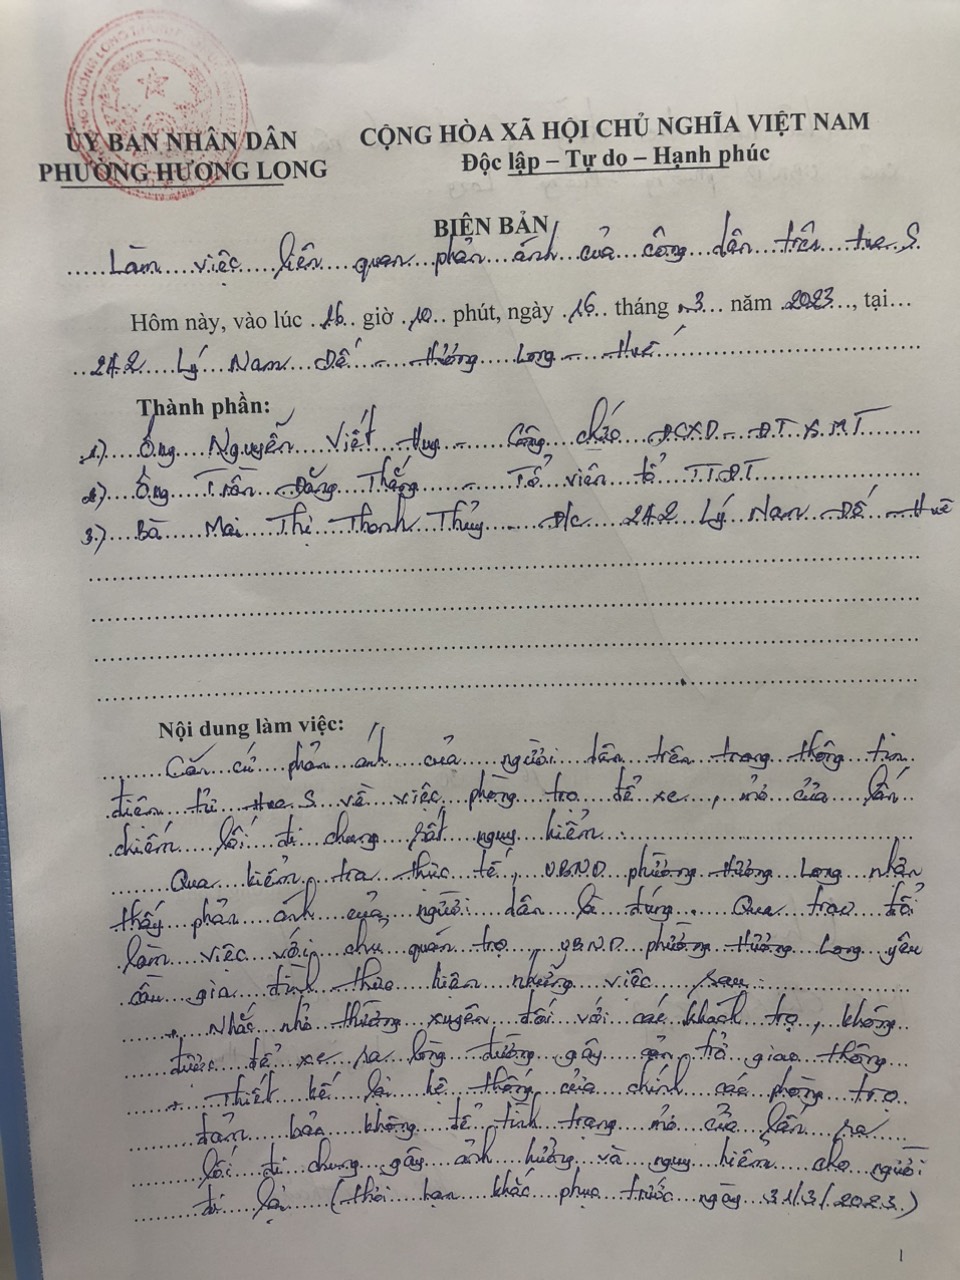 ỦY BAN NHÂN DÂN
PHƯỜNG HƯƠNG LONG
CỘNG HÒA XÃ HỘI CHỦ NGHĨA VIỆT NAM
Độc lập – Tự do – Hạnh phúc
BIÊN BẢN
Làm việc liên quan phản ánh của công dân trên Hue.S.
Hôm này, vào lúc 16 giờ 10 phút, ngày 16 tháng 3 năm 2023, tại
2A2 Lý Nam Đế - Hương Long - Huế
Thành phần:
1) Ông Nguyễn Viết Huy - Công chức ĐCXD - ĐT & MT
2) Ông Trần Đăng Thắng - Tổ viên tổ TTĐT
3) Bà Mai Thị Thanh Thủy - Đ/c 2A2 Lý Nam Đế - Huế
Nội dung làm việc:
Căn cứ phản ánh của người dân trên trang thông tin
điện tử Hue.S về việc phòng trọ để xe, mở cửa lấn
chiếm lối đi chung rất nguy hiểm.
Qua kiểm tra thực tế, UBND phường Hương Long nhận
thấy phản ánh của người dân là đúng. Qua trao đổi
làm việc với chủ quán trọ, UBND phường Hương Long yêu
cầu gia đình thực hiện những việc sau:
+ Nhắc nhở thường xuyên đối với các khách trọ, không
được để xe ra lòng đường gây cản trở giao thông
+ Thiết kế lại hệ thống cửa chính các phòng trọ
đảm bảo không để tình trạng mở cửa lấn ra
lối đi chung gây ảnh hưởng và nguy hiểm cho người
đi lại (thời hạn khắc phục trước ngày 31/3/2023)
1